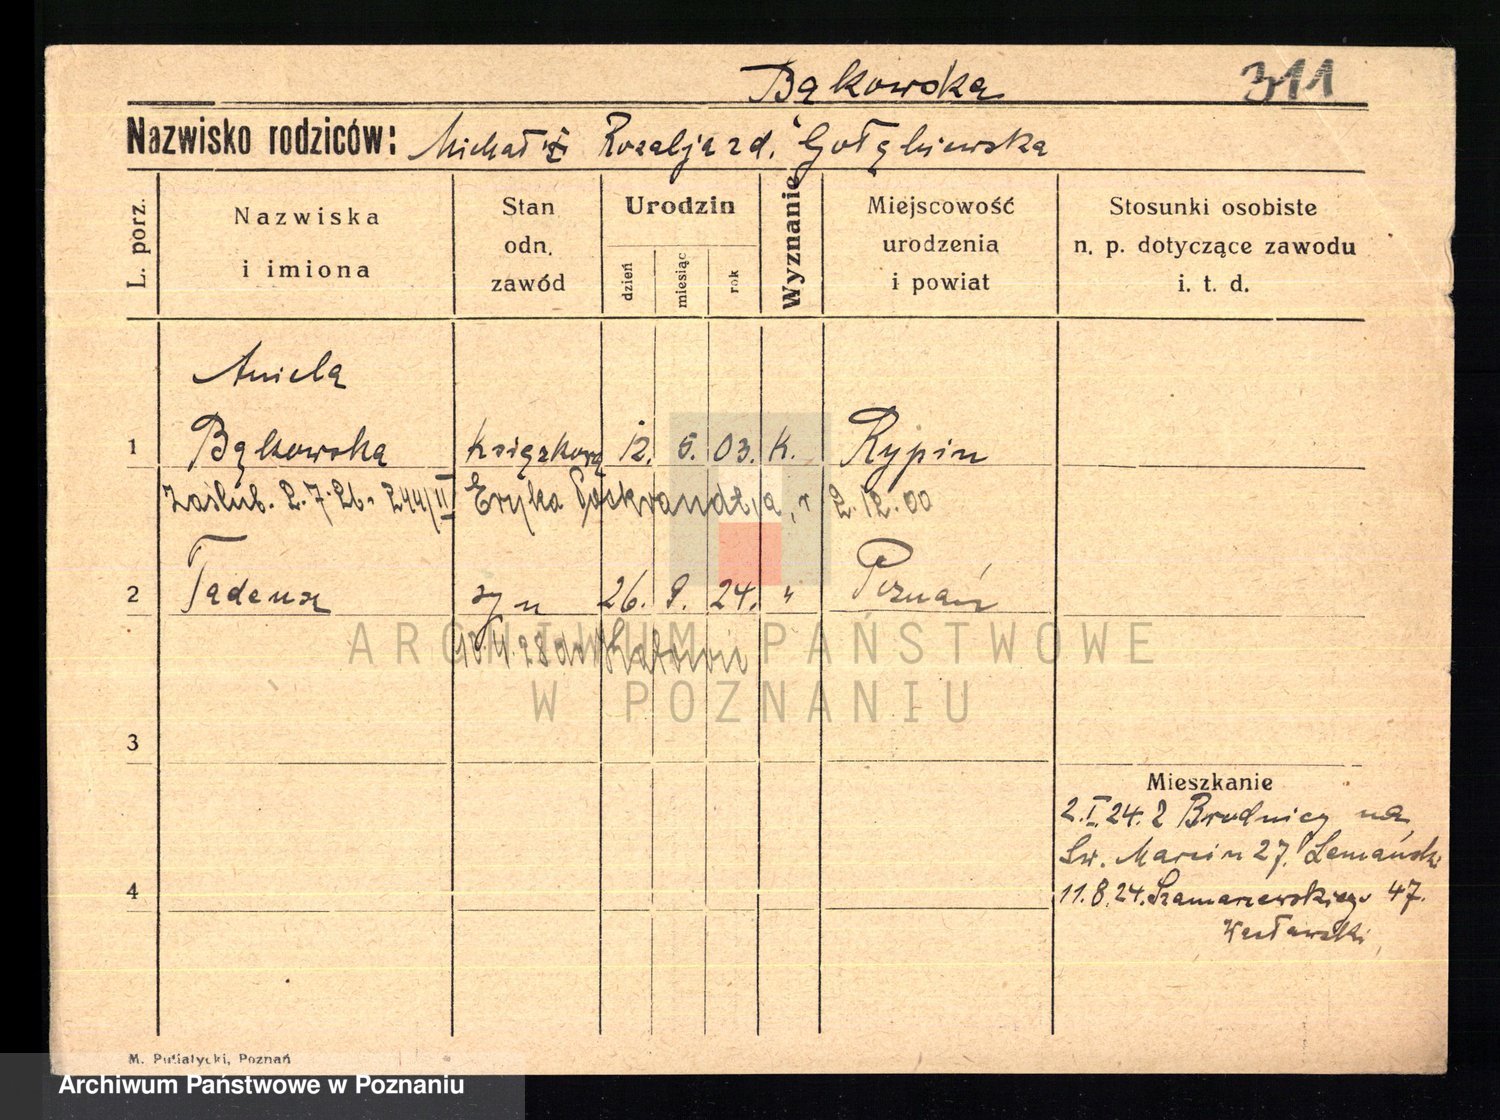 Bąkowska 311
Nazwisko rodziców: Michał i Rozalja zd. Gołębiewska
L. porz.
Nazwiska i imiona
Stan odn. zawód
Urodzin
dzień
miesiąc
rok
Wyznanie
Miejscowość urodzenia i powiat
Stosunki osobiste n. p. dotyczące zawodu i. t. d.
Aniela
1 Bąkowska książkową 12. 5. 03. K. Rypin
Zaślub. 2.7.26. 244/II Eryka 2.12.00
2 Tadeusz syn 26. 9. 24. " Poznań
10.4.28 do
ARCHIWUM PAŃSTWOWE
W POZNANIU
3
Mieszkanie
2.I.24. z Brodnicy na
Św. Marcin 27. Lemański
4 11.8.24. Szamarzewskiego 47.
Wasławski
M. Putiatycki, Poznań
Archiwum Państwowe w Poznaniu